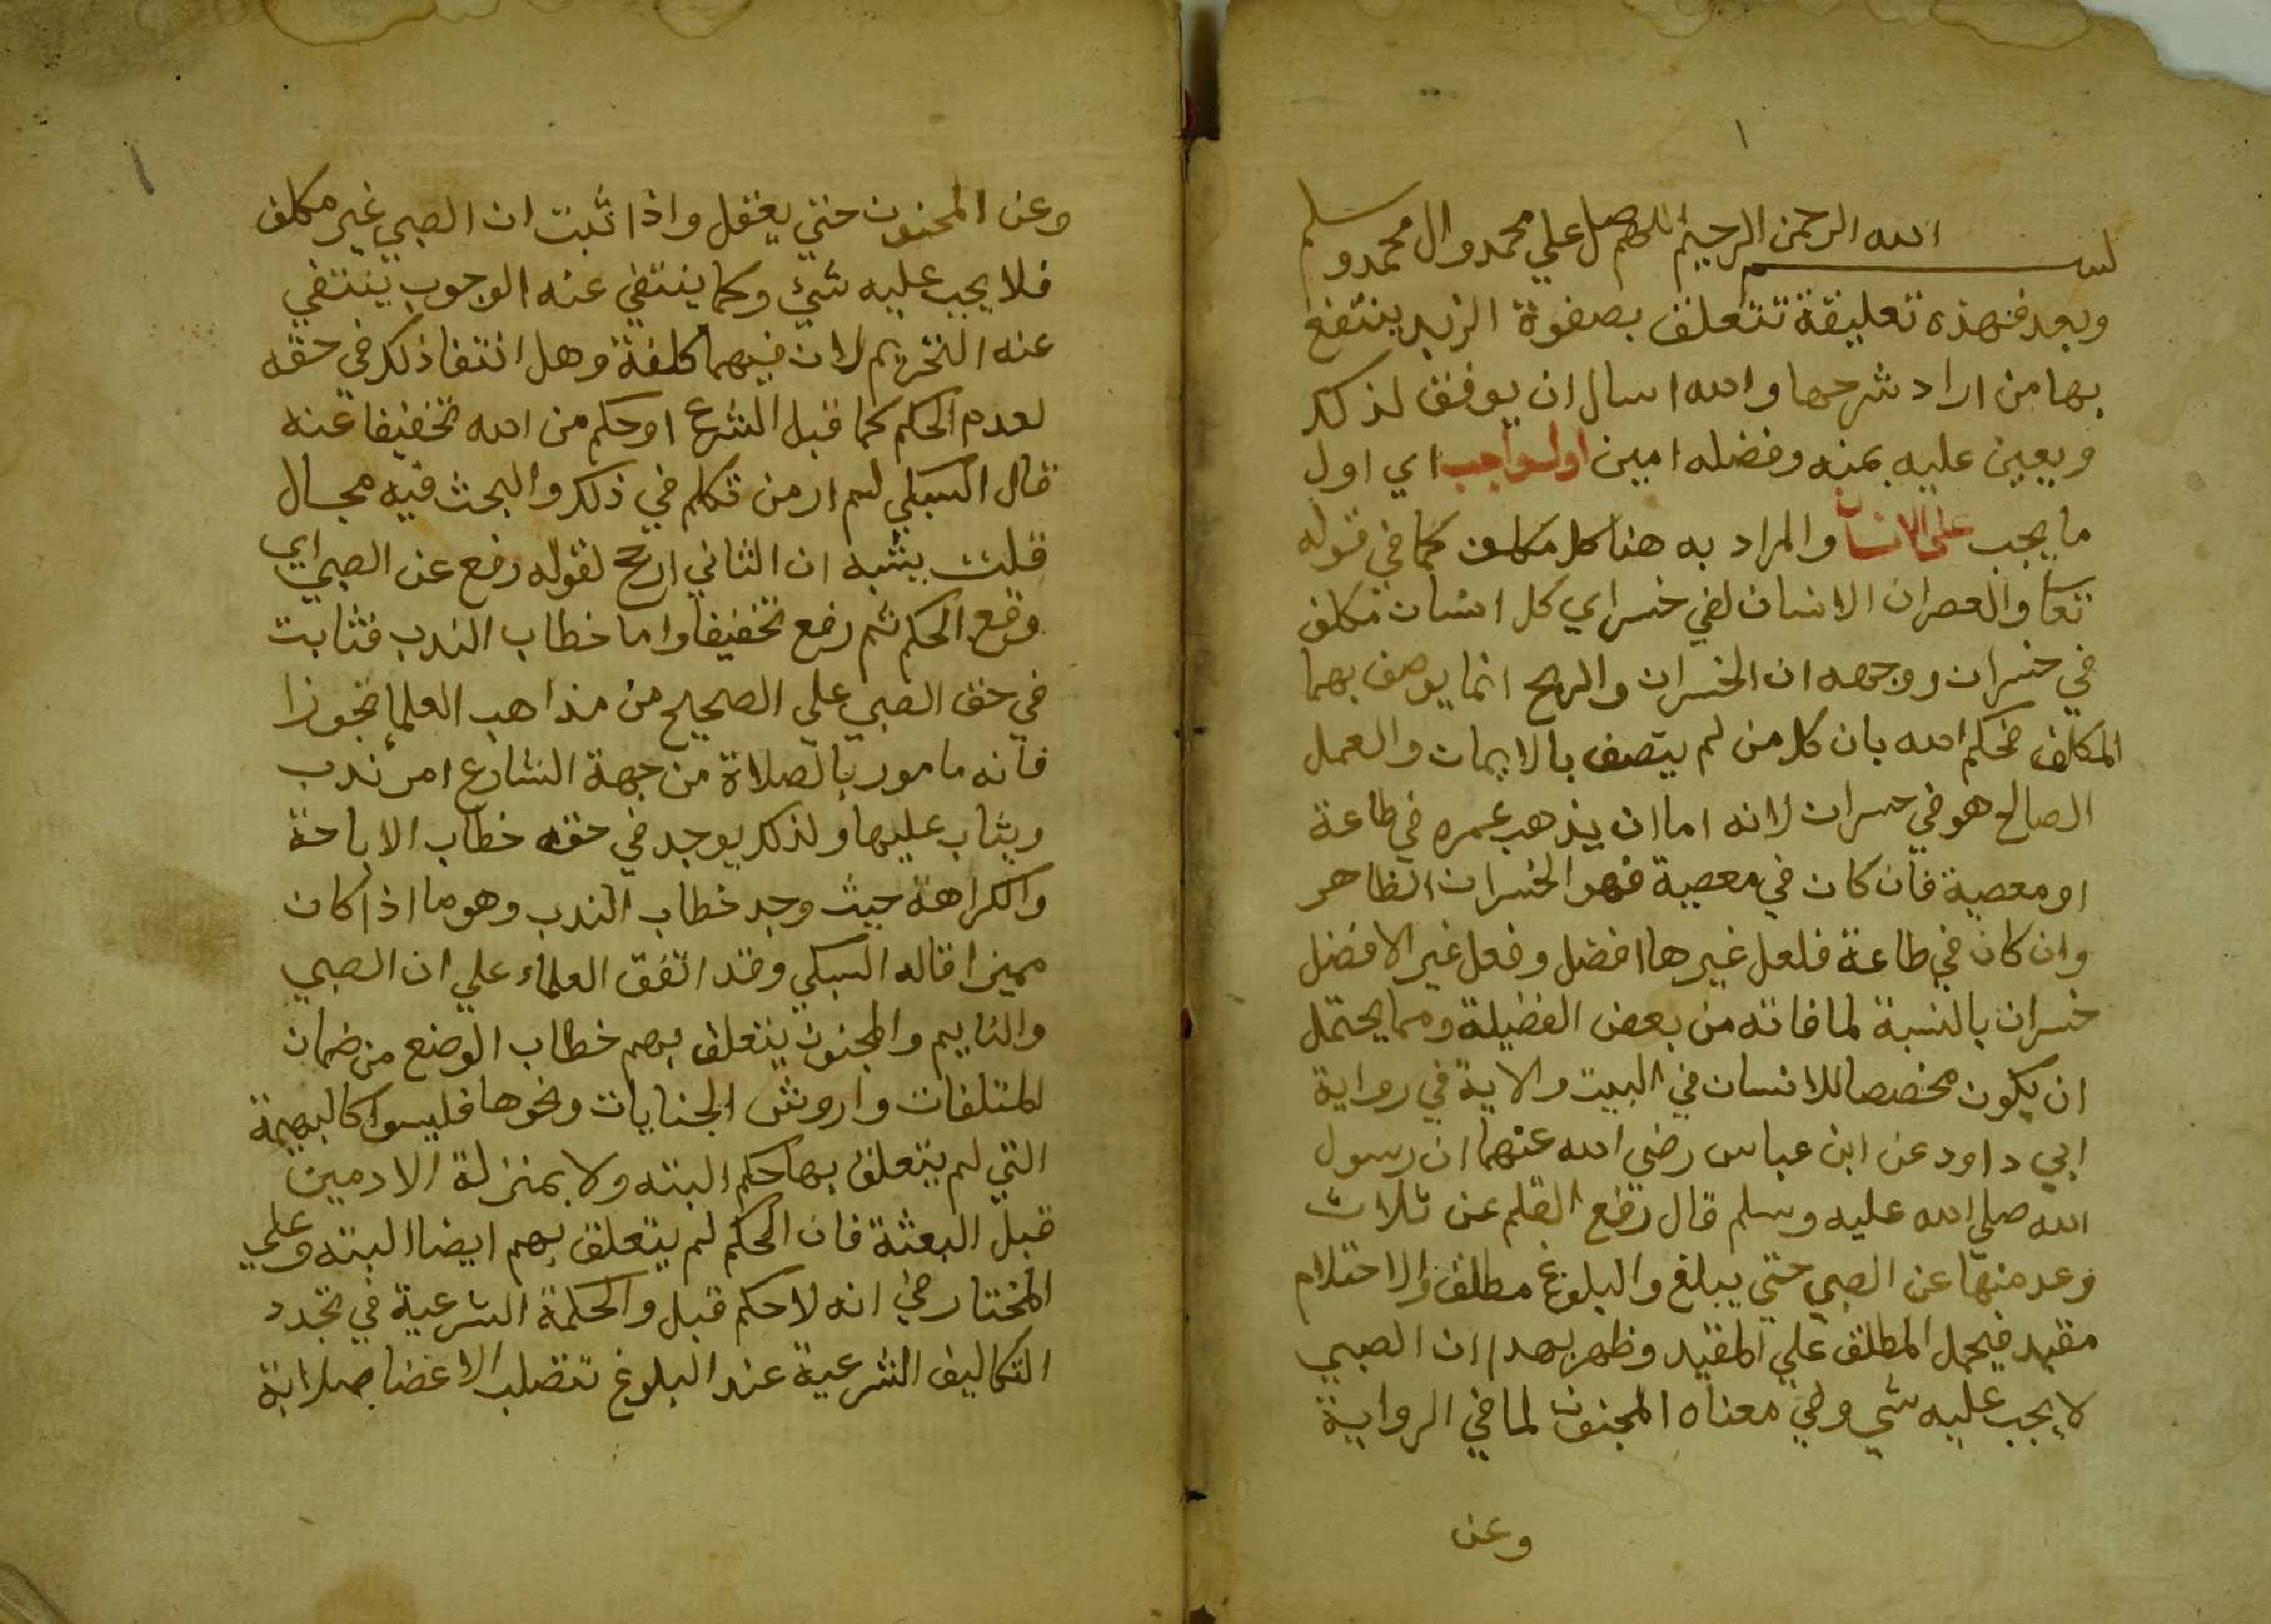 ١
بسم الله الرحمن الرحيم اللهم صل علي محمد وال محمد وسلم
وبعد فهذه تعليقة تتعلق بصفوة الزبد ينتفع
بها من اراد شرحها والله اسال ان يوفق لذلك
ويعين عليه بمنه وفضله امين اول واجب اي اول
ما يجب على الانسان والمراد به هنا كل مكلف كما في قوله
تعا والعصر ان الانسان لفي خسر اي كل انسان مكلف
في خسران ووجهه ان الخسران والربح انما يوصف بهما
المكلف فحكم الله بان كل من لم يتصف بالايمان والعمل
الصالح هو في خسران لانه اما ان يذهب عمره في طاعة
او معصية فان كان في معصية فهو الخسران الظاهر
وان كان في طاعة فلعل غيرها افضل وفعل غير الافضل
خسران بالنسبة لما فاته من بعض الفضيلة ومما يحتمل
ان يكون مخصصا للانسان في البيت والاية في رواية
ابي داود عن ابن عباس رضي الله عنهما ان رسول
الله صلي الله عليه وسلم قال رفع القلم عن ثلاث
وعد منها عن الصبي حتي يبلغ والبلوغ مطلق والاحتلام
مقيد فيحمل المطلق علي المقيد وظهر بهدا ان الصبي
لا يجب عليه شي وفي معناه المجنون لما في الرواية
وعن
١
وعن المجنون حتي يعقل واذا ثبت ان الصبي غير مكلف
فلا يجب عليه شيء وكما ينتفي عنه الوجوب ينتفي
عنه التحريم لان فيهما كلفة وهل انتفا ذلك في حقه
لعدم الحكم كما قبل الشرع او حكم من الله تخفيفا عنه
قال السبكي لم ار من تكلم في ذلك والبحث فيه مجال
قلت يشبه ان الثاني ارجح لقوله رفع عن الصبي اي
وقع الحكم ثم رفع تخفيفا واما خطاب الندب فثابت
في حق الصبي علي الصحيح من مذاهب العلما تجوزا
فانه مامور بالصلاة من جهة الشارع امر ندب
ويثاب عليها ولذلك يوجد في حقه خطاب الاباحة
والكراهة حيث وجد خطاب الندب وهو ما اذا كان
مميزا قاله السبكي وقد اتفق العلماء علي ان الصبي
والنايم والمجنون يتعلق بهم خطاب الوضع من ضمان
المتلفات واروش الجنايات ونحوها فليسوا كالبهيمة
التي لم يتعلق بها حكم البته ولا بمنزلة الادمين
قبل البعثة فان الحكم لم يتعلق بهم ايضا البته وعلي
المختار في انه لا حكم قبل والحكمة الشرعية في تجدد
التكاليف الشرعية عند البلوغ تتصلب الاعضا صلابة